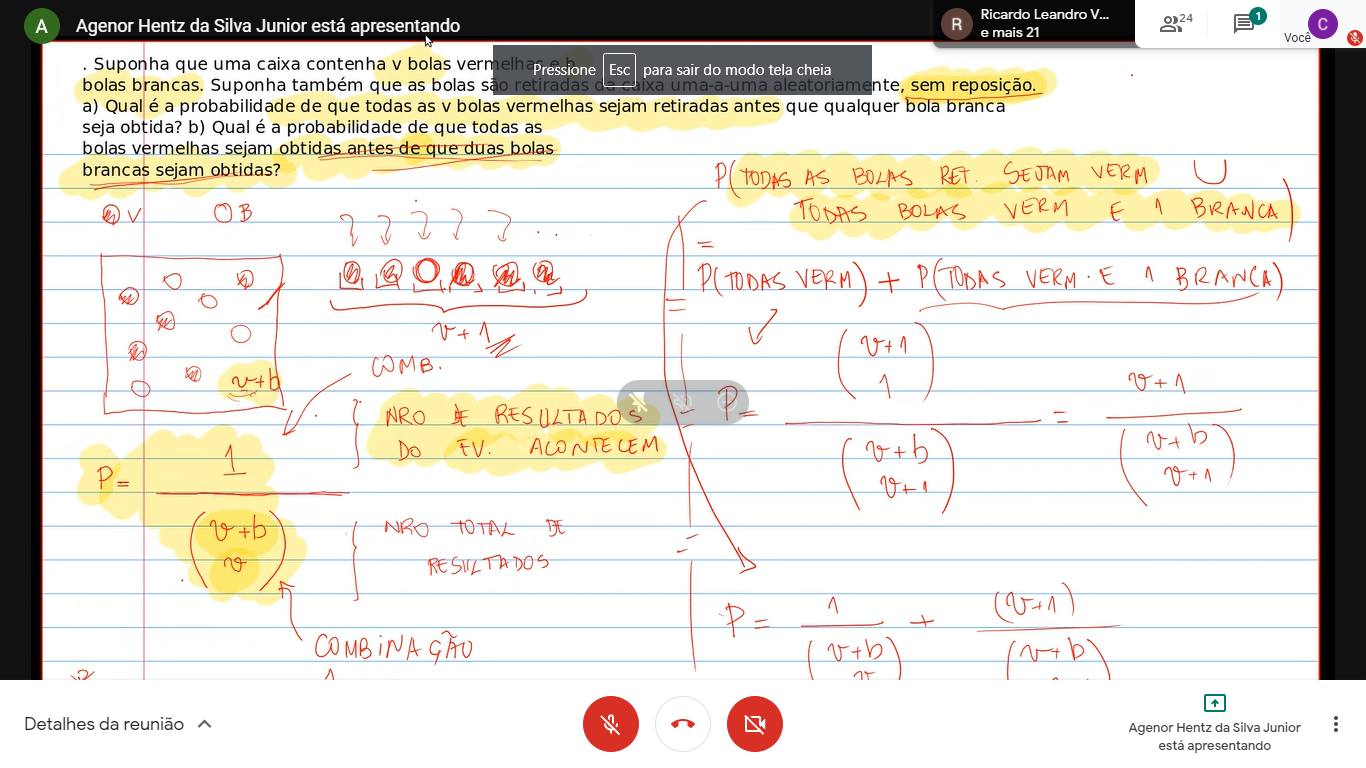 A Agenor Hentz da Silva Junior está apresentando
R Ricardo Leandro V...
e mais 21
24
1
Você
C
Pressione Esc para sair do modo tela cheia
. Suponha que uma caixa contenha v bolas vermelhas e b
bolas brancas. Suponha também que as bolas são retiradas da caixa uma-a-uma aleatoriamente, sem reposição.
a) Qual é a probabilidade de que todas as v bolas vermelhas sejam retiradas antes que qualquer bola branca
seja obtida? b) Qual é a probabilidade de que todas as
bolas vermelhas sejam obtidas antes de que duas bolas
brancas sejam obtidas?
V B
v+b
v+1
COMB.
NRO DE RESULTADOS
DO EV. ACONTECEM
P = 1
(v+b
v)
NRO TOTAL DE
RESULTADOS
COMBINAÇÃO
1
P(TODAS AS BOLAS RET. SEJAM VERM U
TODAS BOLAS VERM E 1 BRANCA)
=
= P(TODAS VERM) + P(TODAS VERM. E 1 BRANCA)
P = (v+1
1)
(v+b
v+1)
= v+1
(v+b
v+1)
P = 1 + (v+1)
(v+b (v+b
Detalhes da reunião
Agenor Hentz da Silva Junior
está apresentando